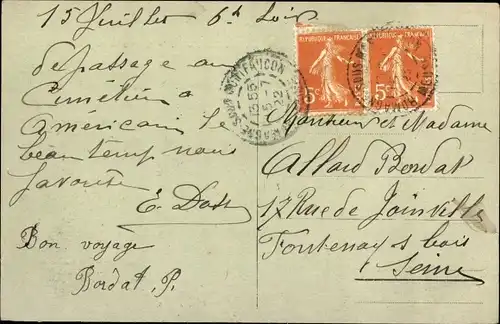 15 Juillet 6h Soir
de passage au
Cimetière
américain le
beau temps nous
favorise
E. Doss
Bon voyage
Bordat, P.
REPUBLIQUE FRANÇAISE
5c
REPUBLIQUE FRANÇAISE
5c
ROMAGNE-SOUS-MONTFAUCON
Monsieur et Madame
Allard Bordat
17 Rue de Joinville
Fontenay s bois
Seine